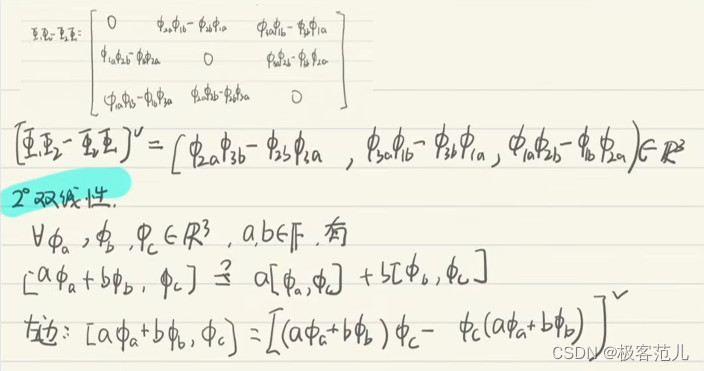 Φ₁Φ₂-Φ₂Φ₁= [ 0 ϕ₂ₐϕ₁b-ϕ₂bϕ₁ₐ ϕ₃ₐϕ₁b-ϕ₃bϕ₁ₐ
ϕ₁ₐϕ₂b-ϕ₁bϕ₂ₐ 0 ϕ₃ₐϕ₂b-ϕ₃bϕ₂ₐ
ϕ₁ₐϕ₃b-ϕ₁bϕ₃ₐ ϕ₂ₐϕ₃b-ϕ₂bϕ₃ₐ 0 ]
[Φ₁Φ₂-Φ₂Φ₁]ᵛ = [ϕ₂ₐϕ₃b-ϕ₂bϕ₃ₐ , ϕ₃ₐϕ₁b-ϕ₃bϕ₁ₐ, ϕ₁ₐϕ₂b-ϕ₁bϕ₂ₐ)∈ℝ³
2°双线性.
∀ϕₐ, ϕb, ϕc∈ℝ³, a,b∈𝔽, 有
[aϕₐ+bϕb, ϕc] ≟ a[ϕₐ,ϕc] + b[ϕb,ϕc]
左边: [aϕₐ+bϕb, ϕc] = [(aϕₐ+bϕb)ϕc - ϕc(aϕₐ+bϕb)]ᵛ
CSDN @极客范儿